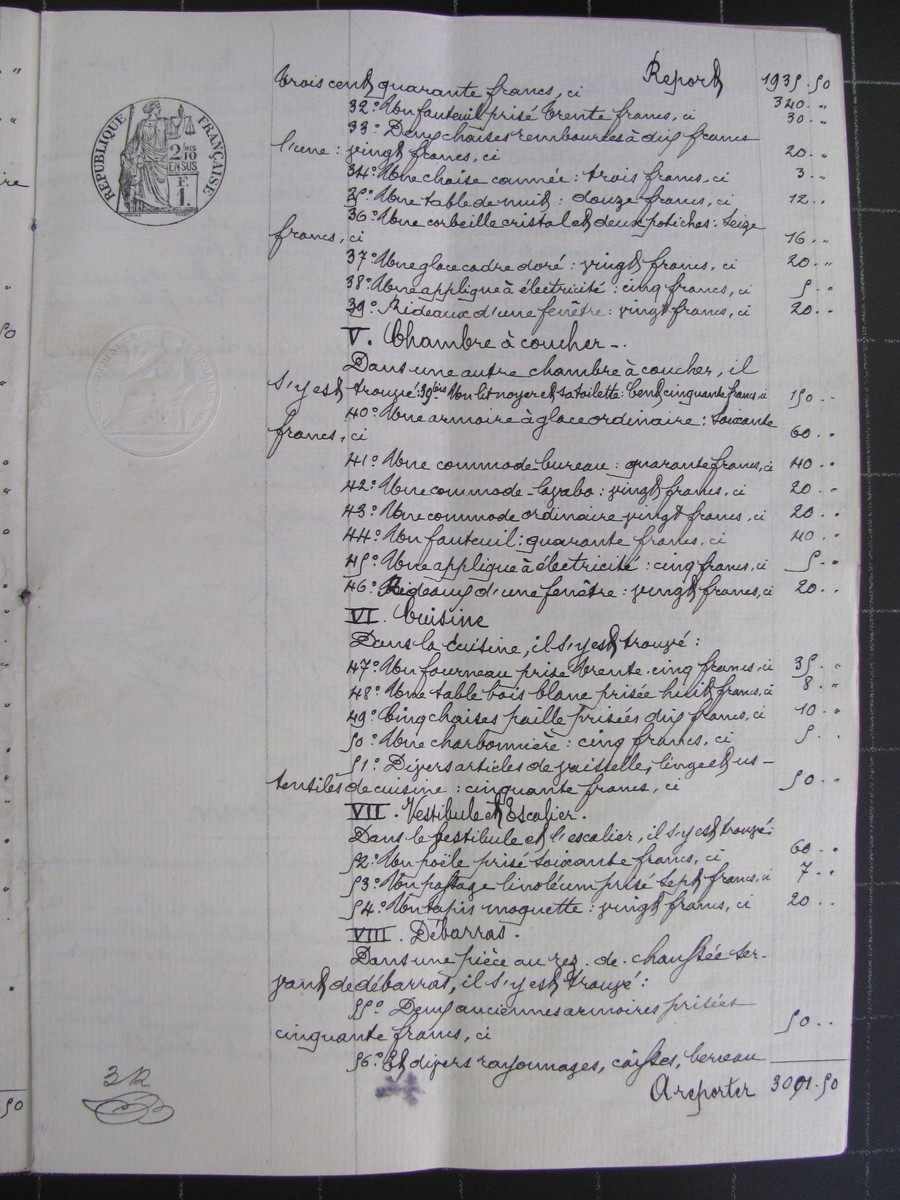 "
"
ire
"
50
"
"
50
RÉPUBLIQUE FRANÇAISE
2/10
EN SUS
F.
1.
Report 1935.50
trois cent quarante francs, ci 340. "
32° Un fauteuil prisé trente francs, ci 30. "
33° Deux chaises rembourées à dix francs
l'une : vingt francs, ci 20. "
34° Une chaise cannée : trois francs, ci 3. "
35° Une table de nuit : douze francs, ci 12. "
36° Une corbeille cristal et deux potiches : seize
francs, ci 16. "
37° Une glace cadre doré : vingt francs, ci 20. "
38° Une applique à électricité : cinq francs, ci 5. "
39° Rideaux d'une fenêtre : vingt francs, ci 20. "
V. Chambre à coucher -.
Dans une autre chambre à coucher, il
s'y est trouvé : 39° bis Un lit noyer et sa toilette : cent cinquante francs, ci 150. "
40° Une armoire à glace ordinaire : soixante
francs, ci 60. "
41° Une commode bureau : quarante francs, ci 40. "
42° Une commode-lavabo : vingt francs, ci 20. "
43° Une commode ordinaire vingt francs, ci 20. "
44° Un fauteuil : quarante francs, ci 40. "
45° Une applique à électricité : cinq francs, ci 5. "
46° Rideaux d'une fenêtre : vingt francs, ci 20. "
VI. Cuisine
Dans la cuisine, il s'y est trouvé :
47° Un fourneau prisé trente-cinq francs, ci 35. "
48° Une table bois blanc prisée huit francs, ci 8. "
49° Cinq chaises paille prisées dix francs, ci 10. "
50° Une charbonnière : cinq francs, ci 5. "
51° Divers articles de vaisselle, linge et us-
tensiles de cuisine : cinquante francs, ci 50. "
VII. Vestibule et Escalier.
Dans le vestibule et l'escalier, il s'y est trouvé :
52° Un poële prisé soixante francs, ci 60. "
53° Un passage linoléum prisé sept francs, ci 7. "
54° Un tapis moquette : vingt francs, ci 20. "
VIII. Débarras.
Dans une pièce au rez-de-chaussée ser-
vant de débarras, il s'y est trouvé :
55° Deux anciennes armoires prisées
cinquante francs, ci 50. "
56° Et divers rayonnages, caisses, berceau
A reporter 3091.50